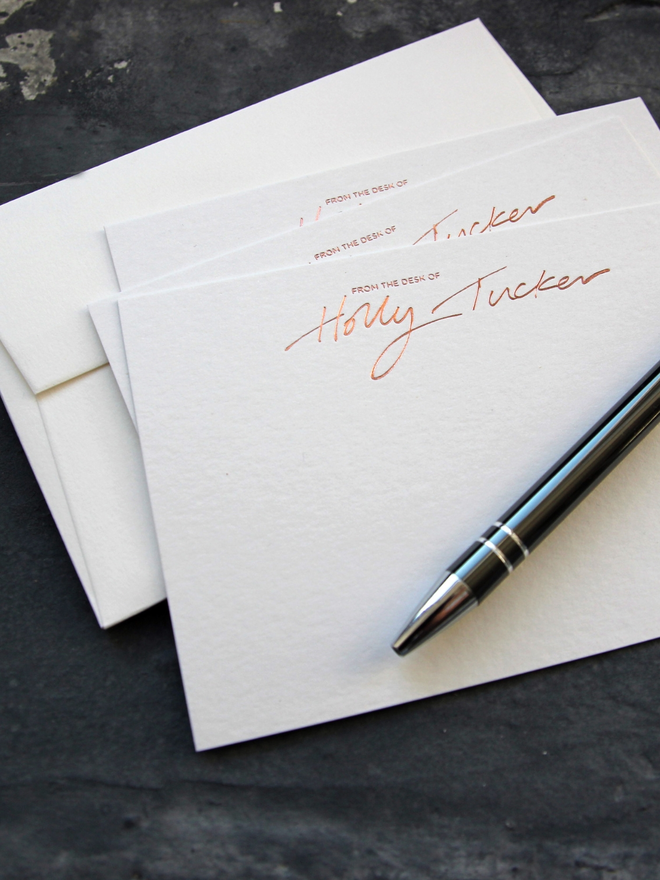 FROM THE DESK OF
FROM THE DESK OF
Tucker
FROM THE DESK OF
Holly Tucker